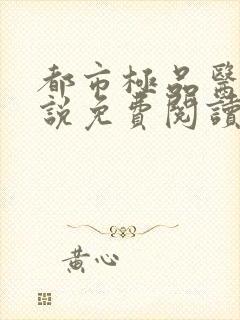 都市極品醫
說免費閱讀
黃心